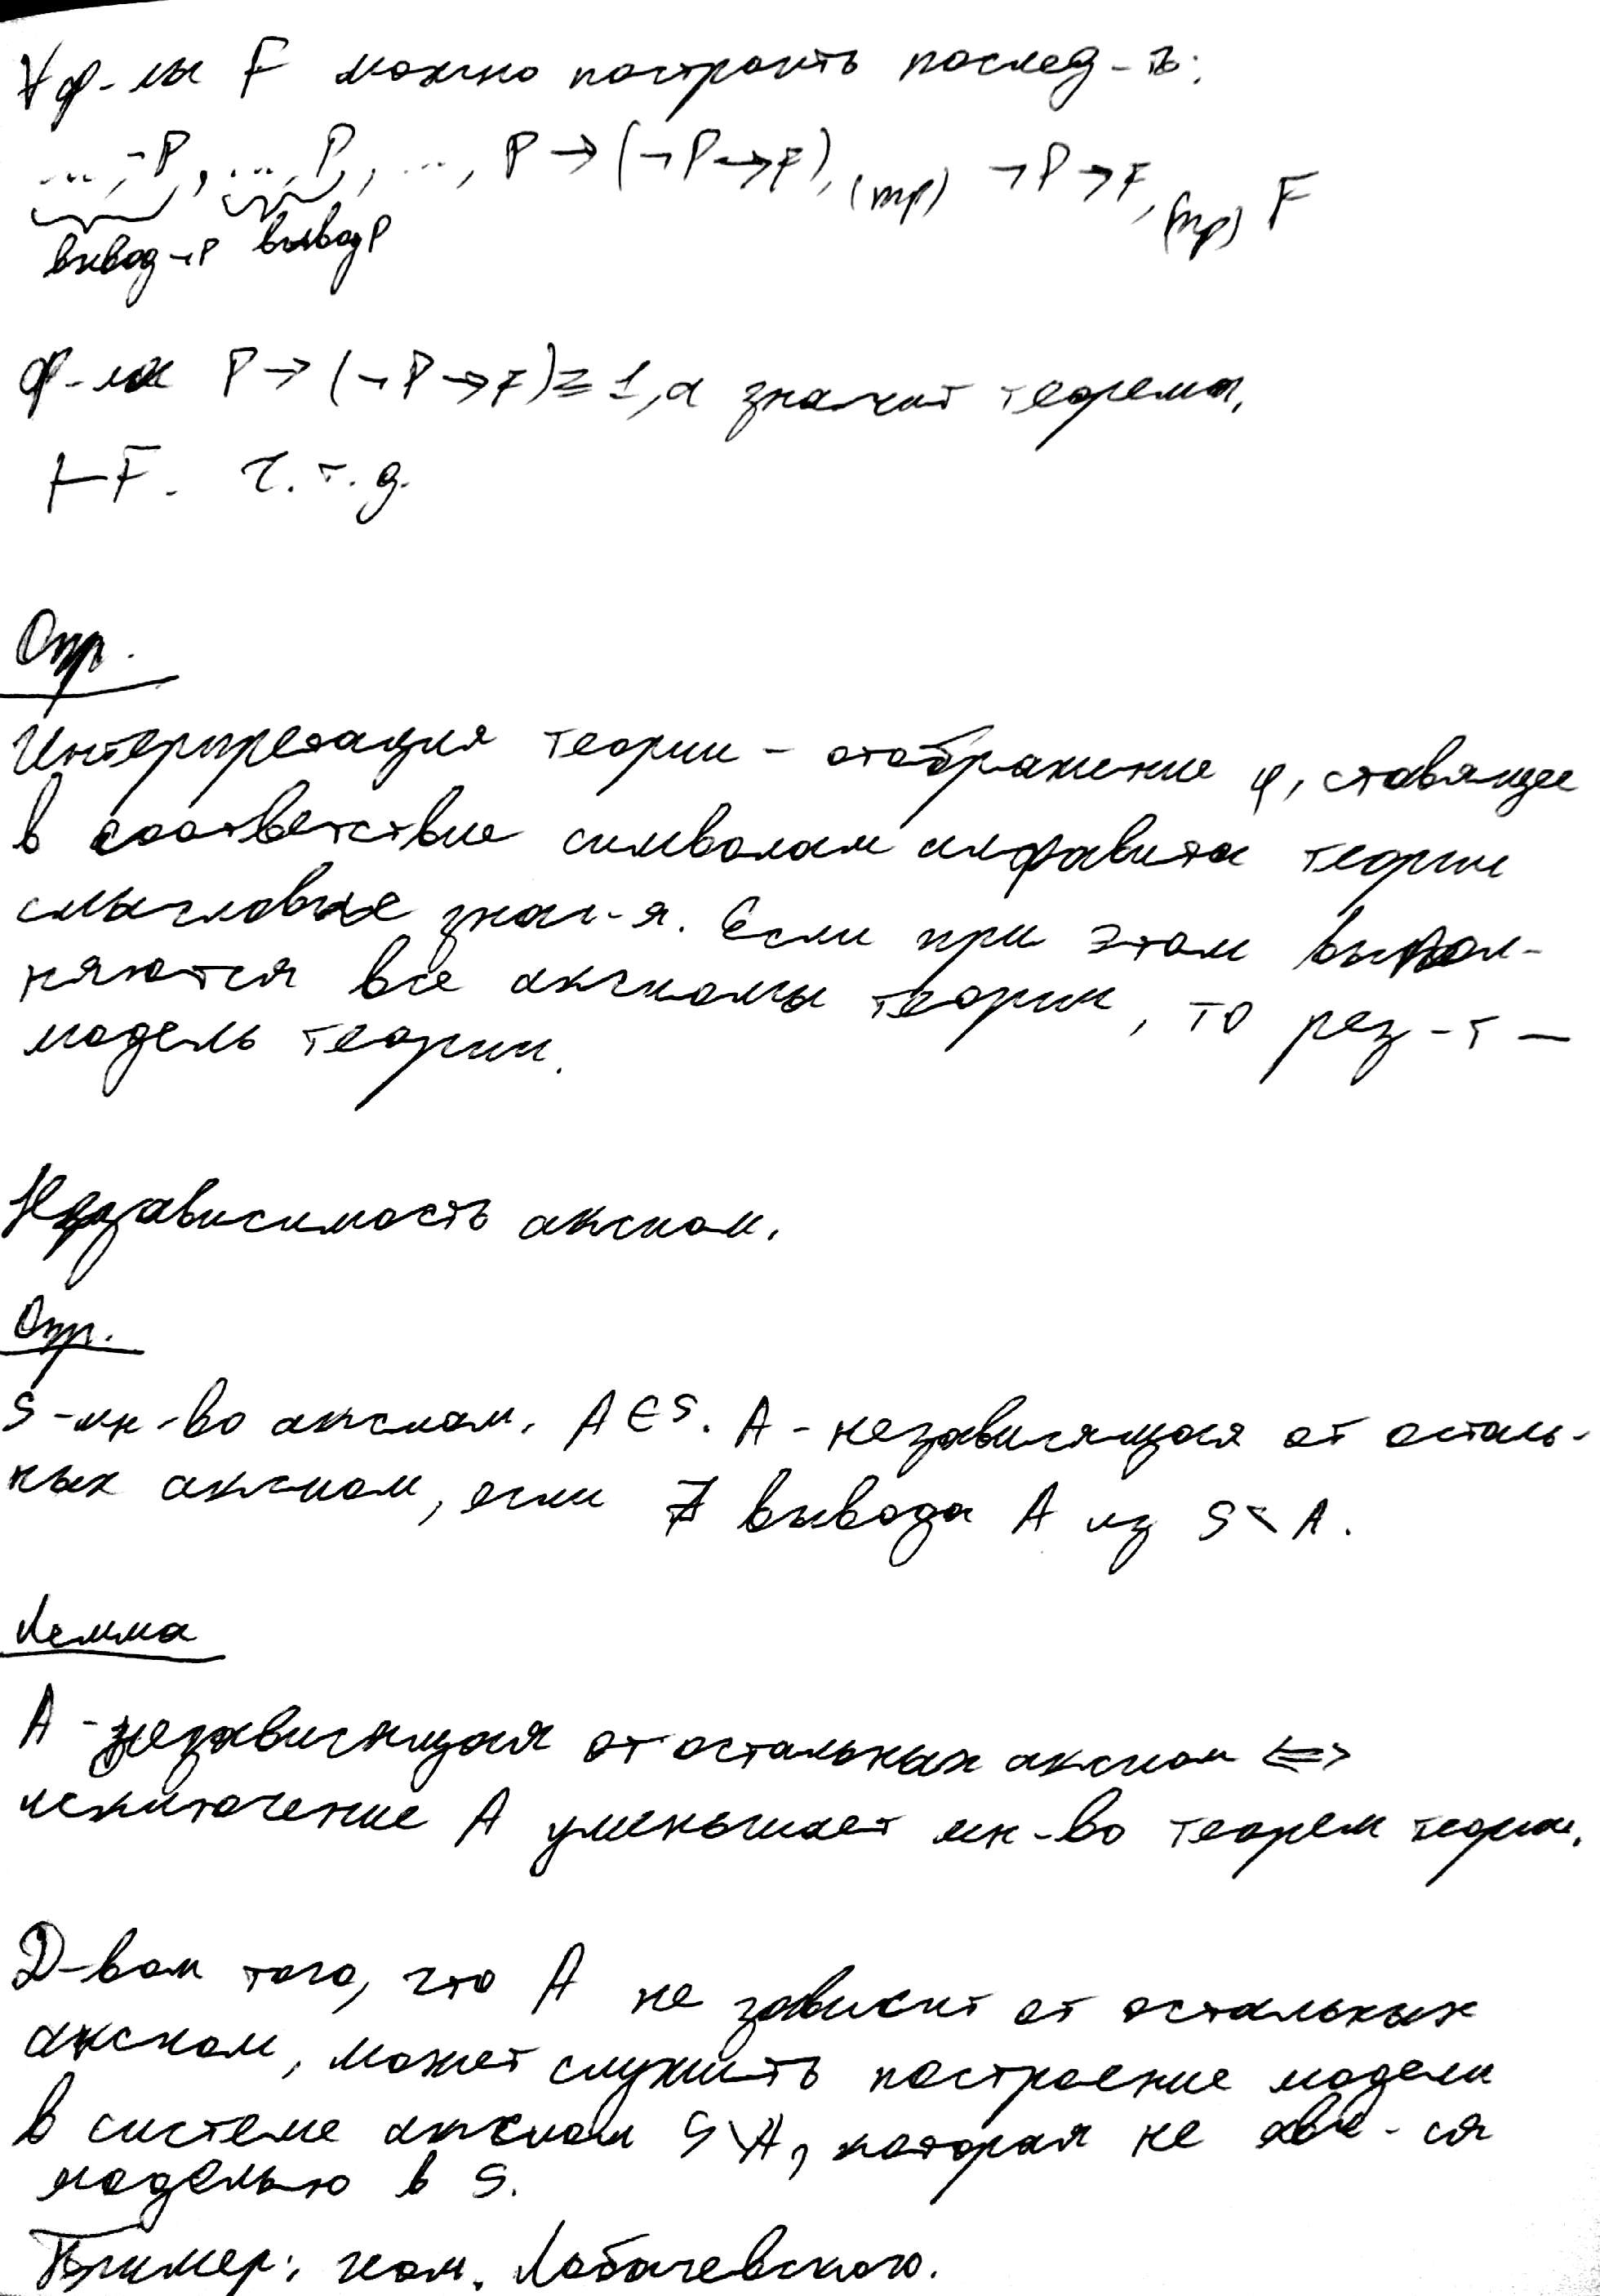 ∀ ф-лы F можно построить послед-ть:
..., ¬P, ..., P, ..., P → (¬P → F), (mp) ¬P → F, (mp) F
вывод ¬P вывод P
ф-ла P → (¬P → F) ≡ 1, а значит теорема,
⊢F. ч.т.д.
Опр.
Интерпретация теории - отображение φ, ставящее
в соответствие символам алфавита теории
смысловые знач-я. Если при этом выпол-
няются все аксиомы теории, то рез-т —
модель теории.
Независимость аксиом.
Опр.
S - мн-во аксиом, A ∈ S. A - независящая от осталь-
ных аксиом, если ∄ вывода A из S \ A.
Лемма
A - независящая от остальных аксиом <=>
исключение A уменьшает мн-во теорем теории.
Д-вом того, что A не зависит от остальных
аксиом, может служить построение модели
в системе аксиом S \ A, которая не явл-ся
моделью в S.
Пример: геом. Лобачевского.